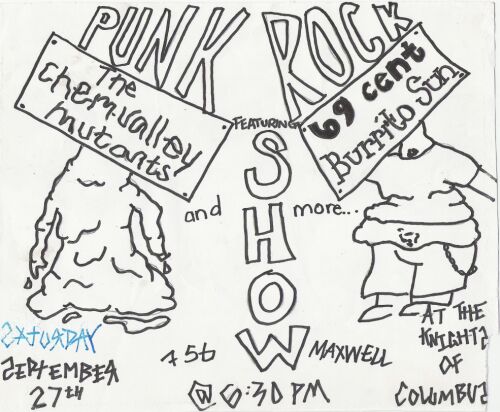 PUNK ROCK
SHOW
FEATURING
The
Chemvalley
Mutants
69 cent
Burrito Sun
and more...
SATURDAY
SEPTEMBER
27TH
456
MAXWELL
@ 6:30 PM
AT THE
KNIGHTS
OF
COLUMBUS